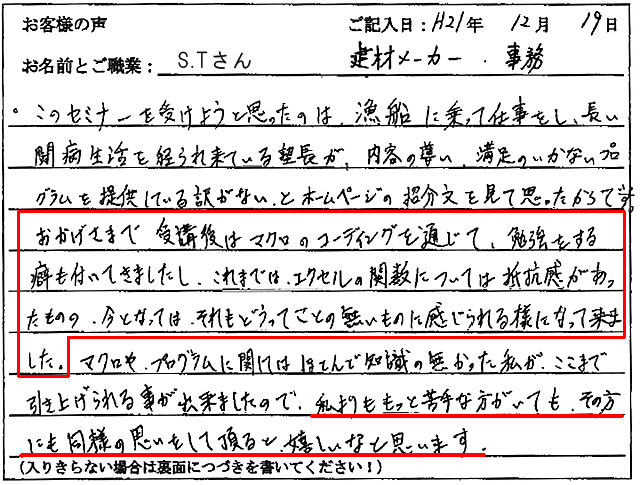 お客様の声 ご記入日：H21年 12月 19日
お名前とご職業： S.Tさん 建材メーカー・事務
。このセミナーを受けようと思ったのは、漁船に乗って仕事をし、長い
闘病生活を経られ来ている塾長が、内容の薄い、満足のいかないプロ
グラムを提供している訳がない、とホームページの紹介文を見て思ったからです。
おかげさまで 受講後はマクロのコーディングを通じて、勉強をする
癖も付いてきましたし、これまでは、エクセルの関数については抵抗感があっ
たものの、今となっては、それもどうってことの無いものに感じられる様になって来ま
した。マクロや、プログラムに関してはほとんど知識の無かった私が、ここまで
引き上げられる事が出来ましたので、私よりももっと苦手な方がいても、その方
にも同様の思いをして頂ると、嬉しいなと思います。
(入りきらない場合は裏面につづきを書いてください！)